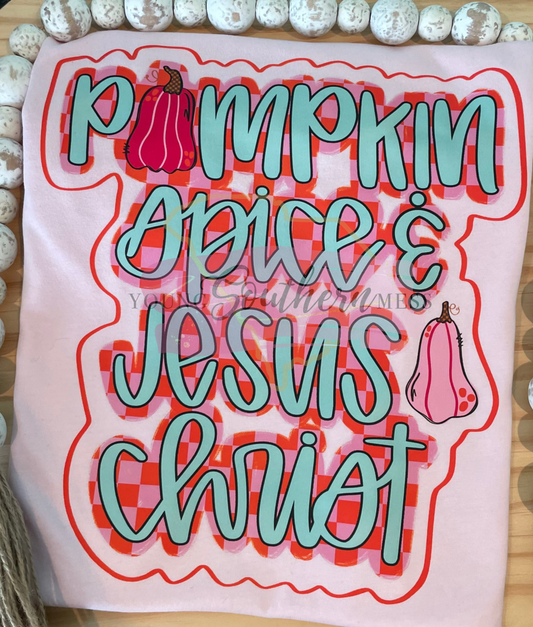 pumpkin
spice &
Jesus
Christ
YOUNG Southern MESS